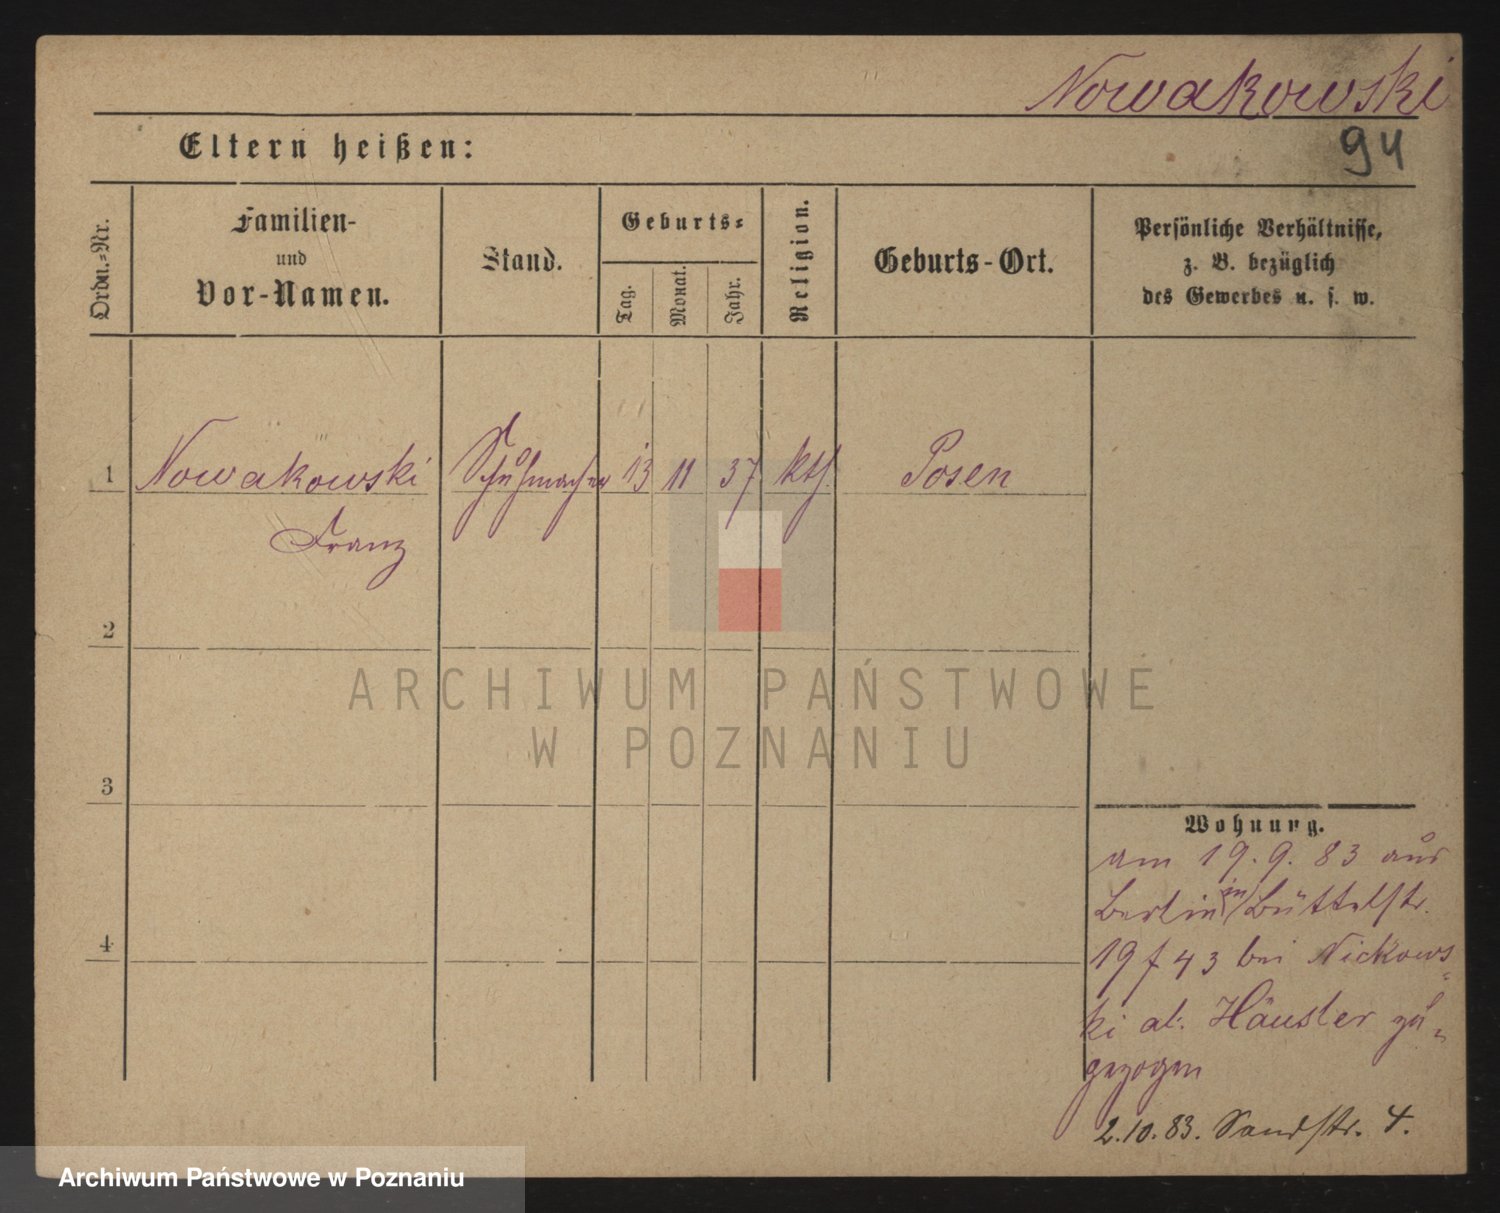 Nowakowski
94
Eltern heißen:
Ordn.=Nr.
Familien-
und
Vor-Namen.
Stand.
Geburts=
Tag.
Monat.
Jahr.
Religion.
Geburts-Ort.
Persönliche Verhältnisse,
z. B. bezüglich
des Gewerbes u. s. w.
1 Nowakowski Schuhmacher 13 11 37 kth. Posen
Franz
2
3
4
Wohnung.
am 19. 9. 83 aus
Berlin in Büttelstr.
19 f 43 bei Nickows=
ki al. Häusler zu=
gezogen
2.10.83. Sandstr. 4.
ARCHIWUM PAŃSTWOWE
W POZNANIU
Archiwum Państwowe w Poznaniu